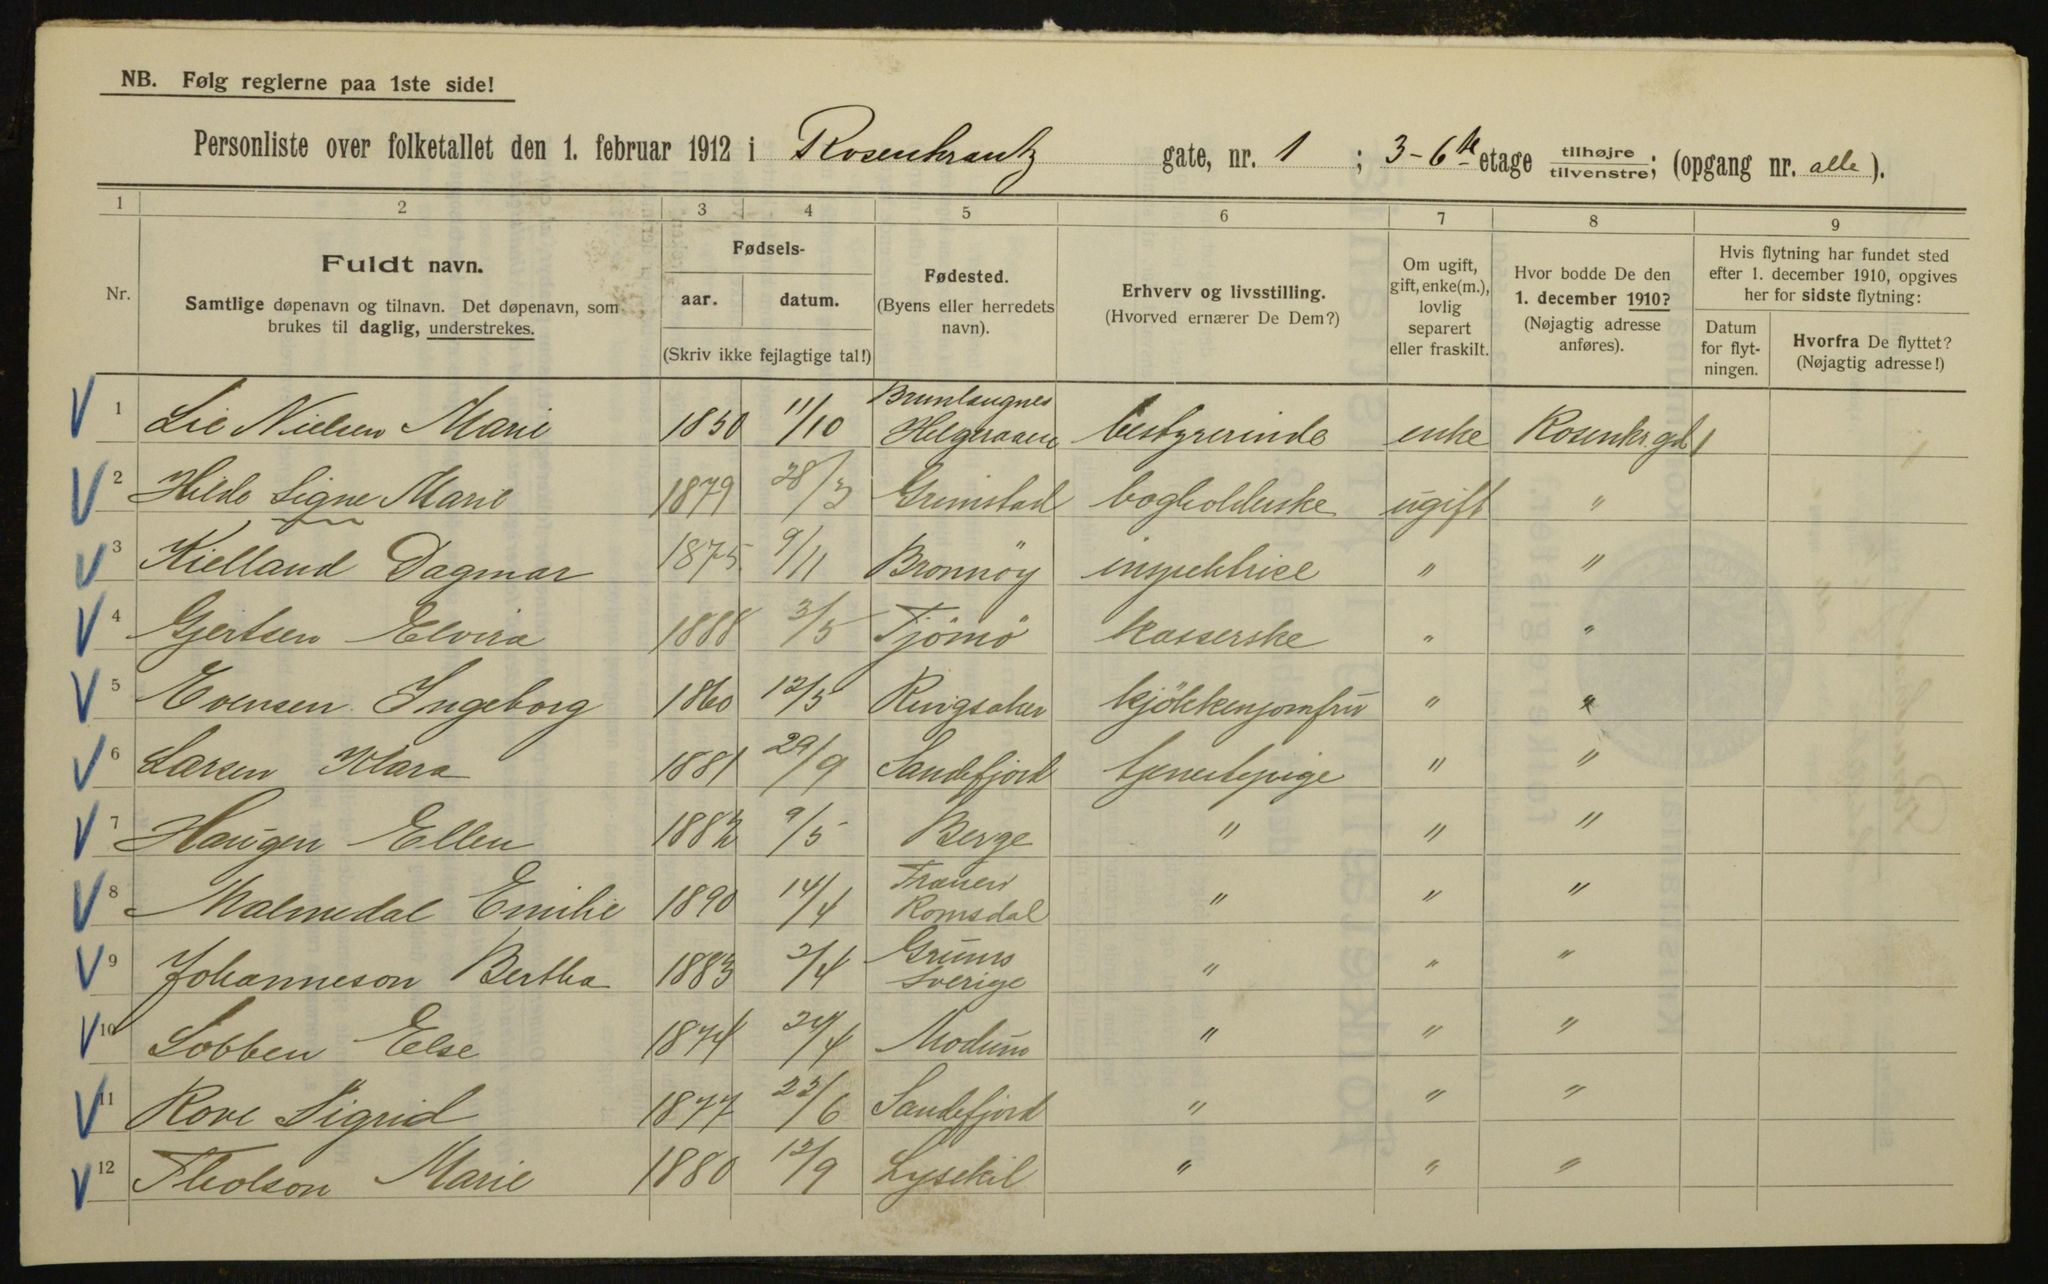 NB. Følg reglerne paa 1ste side!
Personliste over folketallet den 1. februar 1912 i Rosenkrantz gate, nr. 1 ; 3-6te etage tilhøjre tilvenstre; (opgang nr. alle ).
1 2 3 4 5 6 7 8 9
Nr.
Fuldt navn.
Samtlige døpenavn og tilnavn. Det døpenavn, som
brukes til daglig, understrekes.
Fødsels-
aar. datum.
(Skriv ikke fejlagtige tal!)
Fødested.
(Byens eller herredets
navn).
Erhverv og livsstilling.
(Hvorved ernærer De Dem?)
Om ugift,
gift, enke(m.),
lovlig
separert
eller fraskilt.
Hvor bodde De den
1. december 1910?
(Nøjagtig adresse
anføres).
Hvis flytning har fundet sted
efter 1. december 1910, opgives
her for sidste flytning:
Datum
for flyt-
ningen.
Hvorfra De flyttet?
(Nøjagtig adresse!)
1 Lie Nielsen Marie 1850 11/10 Brunlaugnes Helgeraaen bestyrerinde enke Rosenkr.gd 1
2 Hilde Signe Marie 1879 28/3 Grimstad bogholderske ugift "
3 Kielland Dagmar 1875 9/11 Brønnøy inspektrice " "
4 Gjertsen Elvira 1888 3/5 Tjömö kasserske " "
5 Evensen Ingeborg 1860 12/5 Ringsaker kjökkenjomfru " "
6 Larsen Klara 1881 29/9 Sandefjord tjenestepige " "
7 Haugen Ellen 1882 9/5 Berge " " "
8 Malmedal Emilie 1890 14/4 Fraenen Romsdal " " "
9 Johanneson Bertha 1883 2/4 Grums Sverige " " "
10 Lobben Else 1874 24/4 Modum " " "
11 Rove Sigrid 1877 22/6 Sandefjord " " "
12 Tholson Marie 1880 12/9 Lysekil " " "